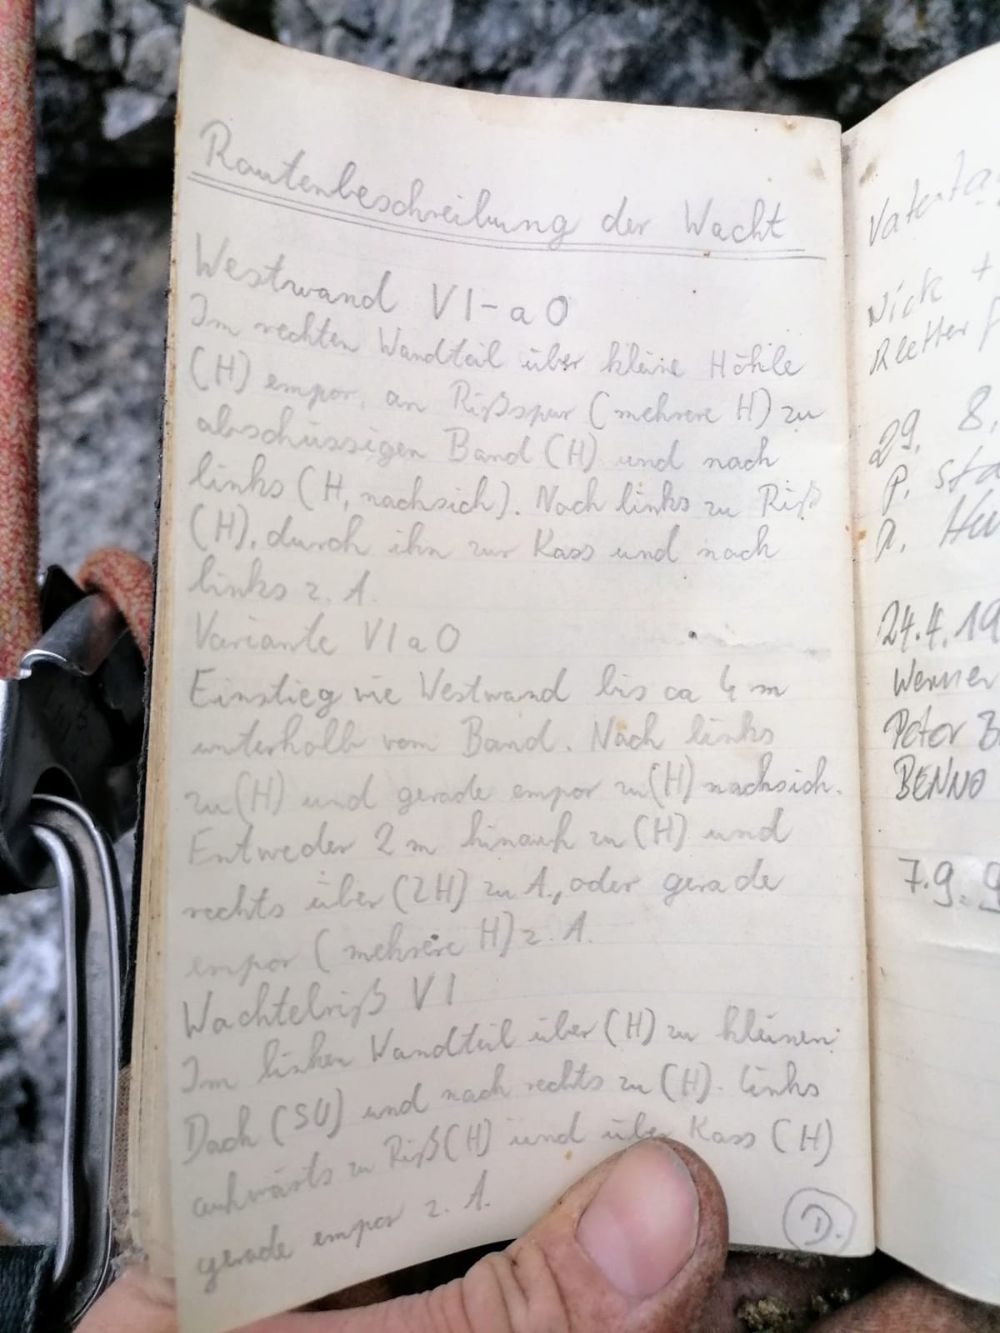 Routenbeschreibung der Wacht
Westwand VI- a0
Im rechten Wandteil über kleine Höhle
(H) empor, an Rißspur (mehrere H) zu
abschüssigen Band (H) und nach
links (H, nachsich). Nach links zu Riß
(H), durch ihn zur Kass und nach
links z. A.
Variante VI a0
Einstieg wie Westwand bis ca 4 m
unterhalb vom Band. Nach links
zu (H) und gerade empor zu (H) nachsich.
Entweder 2 m hinauf zu (H) und
rechts über (2H) zu A., oder gerade
empor (mehrere H) z. A.
Wachtelriß VI
Im linken Wandteil über (H) zu kleinen
Dach (SU) und nach rechts zu (H). Links
aufwärts zu Riß (H) und über Kass (H)
gerade empor z. A.
1.
Nick +
29. 8.
P.
R.
24.4.19
Werner
Peter B
BENNO
7.9.9